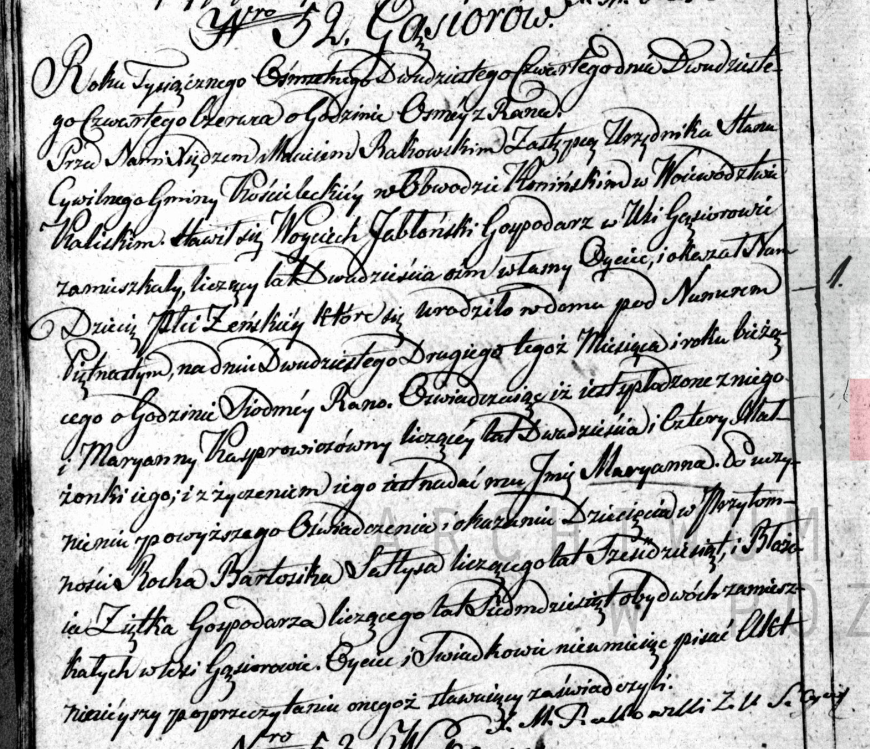 Nro 52. Gąsiorow.
Roku Tysiącznego Ośmsetnego Dwudziestego Czwartego dnia Dwudzieste-
go Czwartego Czerwca o Godzinie Osmey z Rana.
Przed Nami Xiędzem Macieiem Rakowskim Zastępcą Urzędnika Stanu
Cywilnego Gminy Kościeleckiéy w Obwodzie Konińskim w Woiewództwie
Kaliskim. Stawił się Woyciech Jabłoński Gospodarz w Wsi Gąsiorowie
zamieszkały, liczący lat Dwadzieścia ośm własny Oyciec, i okazał Nam
1.
Dziecię Płci Zeńskiéy które się urodziło w domu pod Numerem
Piętnastym, na dniu Dwudziestego Drugiego tegoż Miesiąca i roku bieżą-
cego o Godzinie Siodméy Rano. Oświadczaiąc iż iest spłodzone z niego
i Maryanny Kasprowiczówny liczącéy lat Dwadzieścia i Cztery Mał-
żonki iego; i z życzeniem iego iest nadać mu Jmię Maryanna. Po uczy-
nieniu powyższego Oświadczenia i okazaniu Dziecięcia w Przytom-
ności Rocha Bartosika Sołtysa liczącego lat Sześćdziesiąt, i Błaże-
ia Ziętka Gospodarza liczącego lat Siedmdziesiąt obydwóch zamiesz-
kałych w wsi Gąsiorowie. Oyciec i Swiadkowie nieumieiąc pisać Akt
ninieyszy po przeczytaniu onegoż stawaiący zaświadczyli.
X. M. Rakowski Z. U. S. Cywil
Nro 53.
ARCHIWUM
W POZ